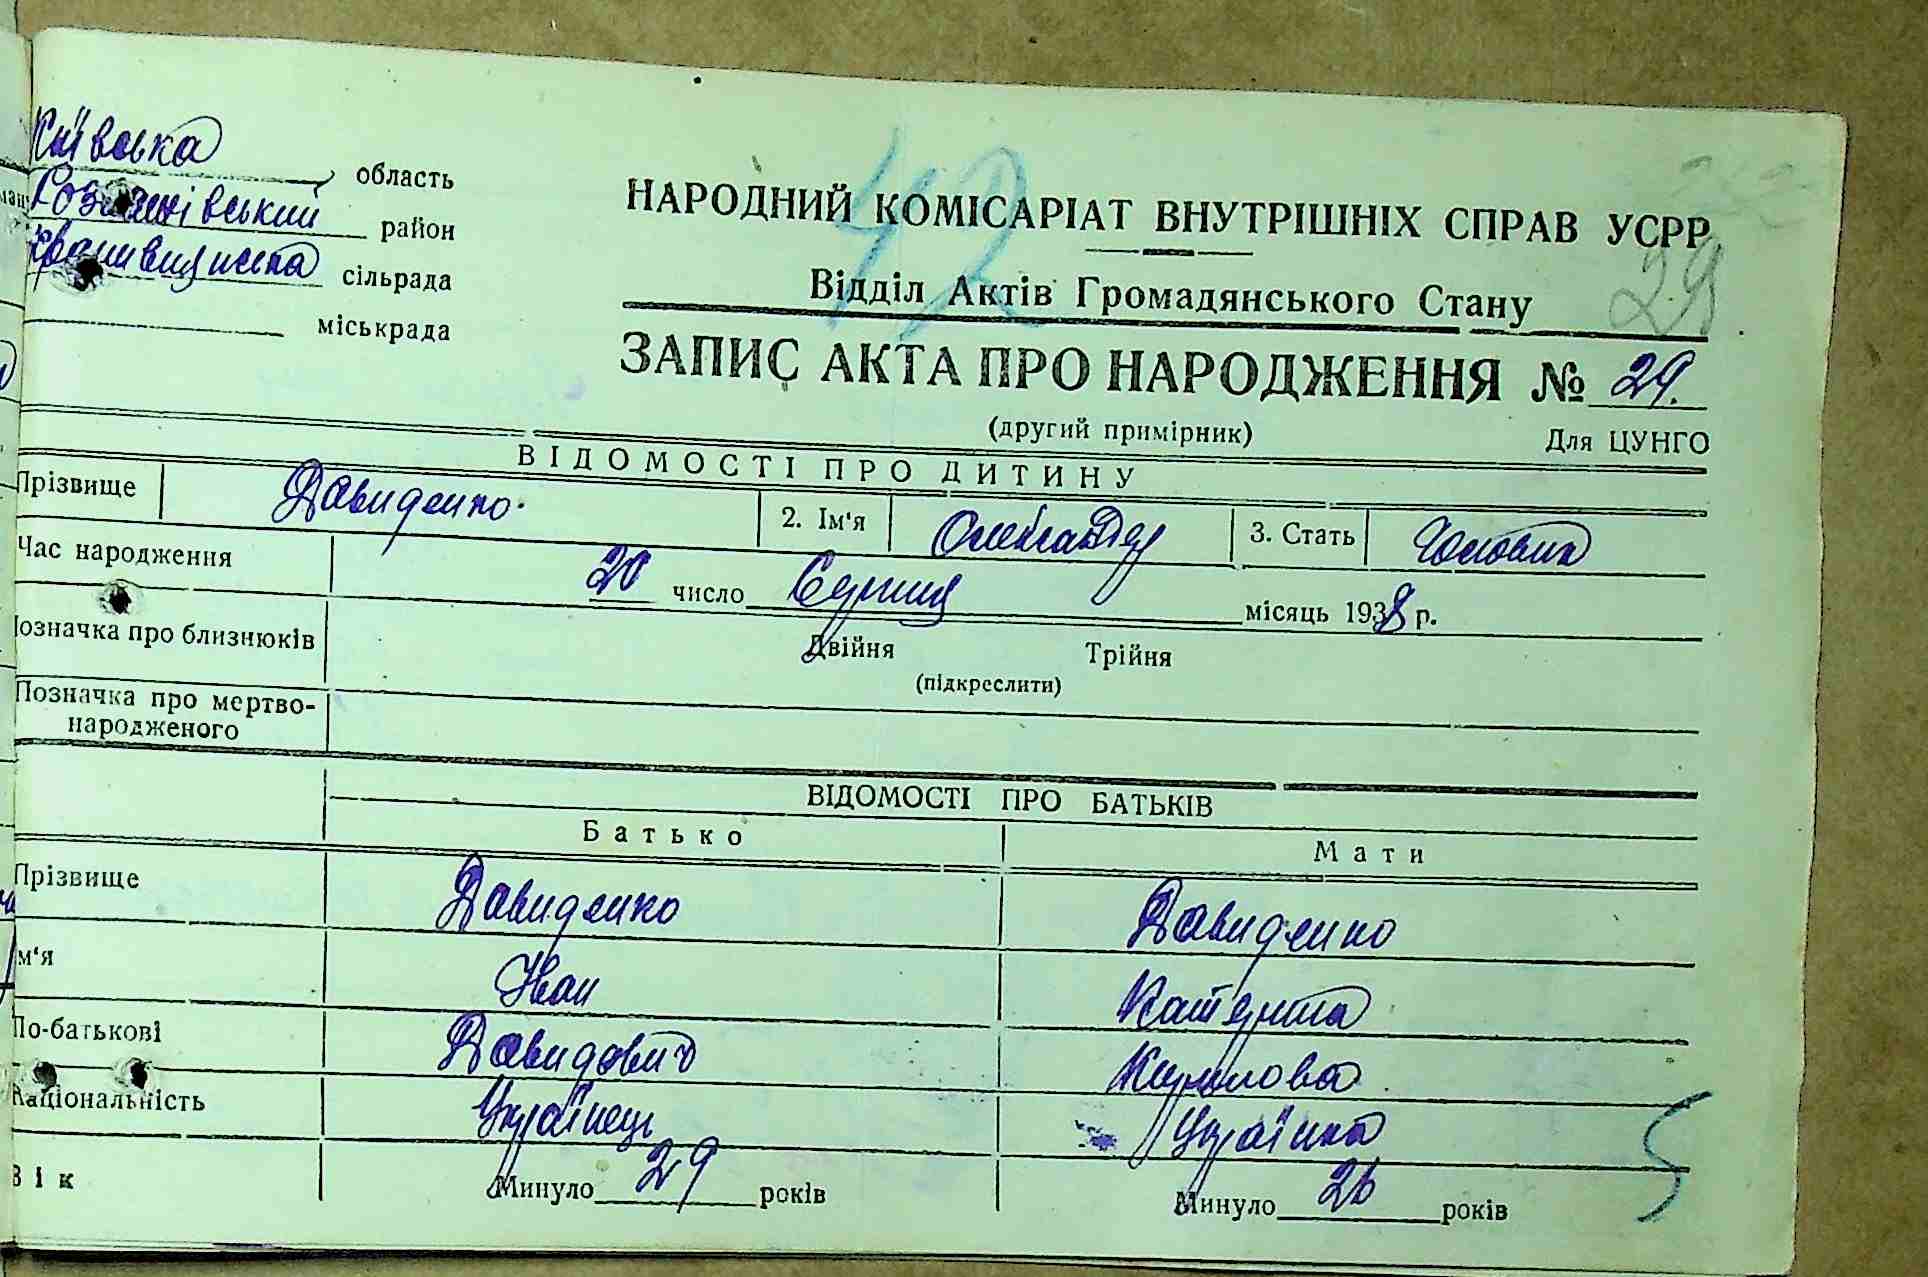 Київська область
район
сільрада
міськрада
42
НАРОДНИЙ КОМІСАРІАТ ВНУТРІШНІХ СПРАВ УСРР
29
Відділ Актів Громадянського Стану
ЗАПИС АКТА ПРО НАРОДЖЕННЯ № 29.
(другий примірник) Для ЦУНГО
ВІДОМОСТІ ПРО ДИТИНУ
Прізвище Давиденко 2. Ім'я Олександер 3. Стать
Час народження 20 число Серпня місяць 1938 р.
Позначка про близнюків Двійня Трійня
(підкреслити)
Позначка про мертво-
народженого
ВІДОМОСТІ ПРО БАТЬКІВ
Батько Мати
Прізвище Давиденко Давиденко
м'я Іван Катерина
По-батькові Давидович Кирилова
Національність Українець Українка
Вік Минуло 29 років Минуло 26 років